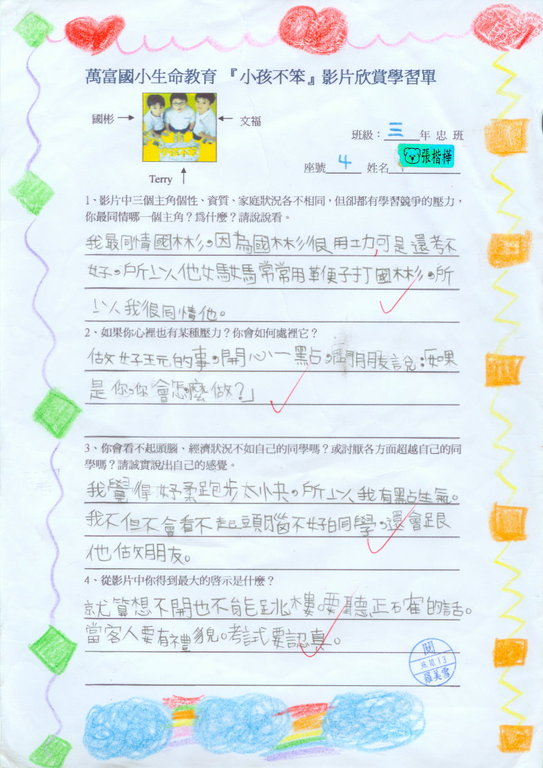 萬富國小生命教育 『小孩不笨』影片欣賞學習單
國彬
文福
小孩不笨
Terry
班級：三 年 忠 班
座號 4 姓名 張楷樺
1、影片中三個主角個性、資質、家庭狀況各不相同，但卻都有學習競爭的壓力，
你最同情哪一個主角？為什麼？請說說看。
我最同情國彬。因為國彬很用功,可是還考不
好。所以他媽媽常常用鞭子打國彬。所
以我很同情他。
2、如果你心裡也有某種壓力？你會如何處裡它？
做好玩的事。開心一點。 朋友說:「如果
是你,你會怎麼做？」
3、你會看不起頭腦、經濟狀況不如自己的同學嗎？或討厭各方面超越自己的同
學嗎？請誠實說出自己的感覺。
我覺得 跑步太快。所以我有點生氣。
我不但不會看不起頭腦不好的同學。還會跟
他做朋友。
4、從影片中你得到最大的啓示是什麼？
就算想不開也不能跳樓。要聽正確的話。
當客人要有禮貌。考試要認真。
閱